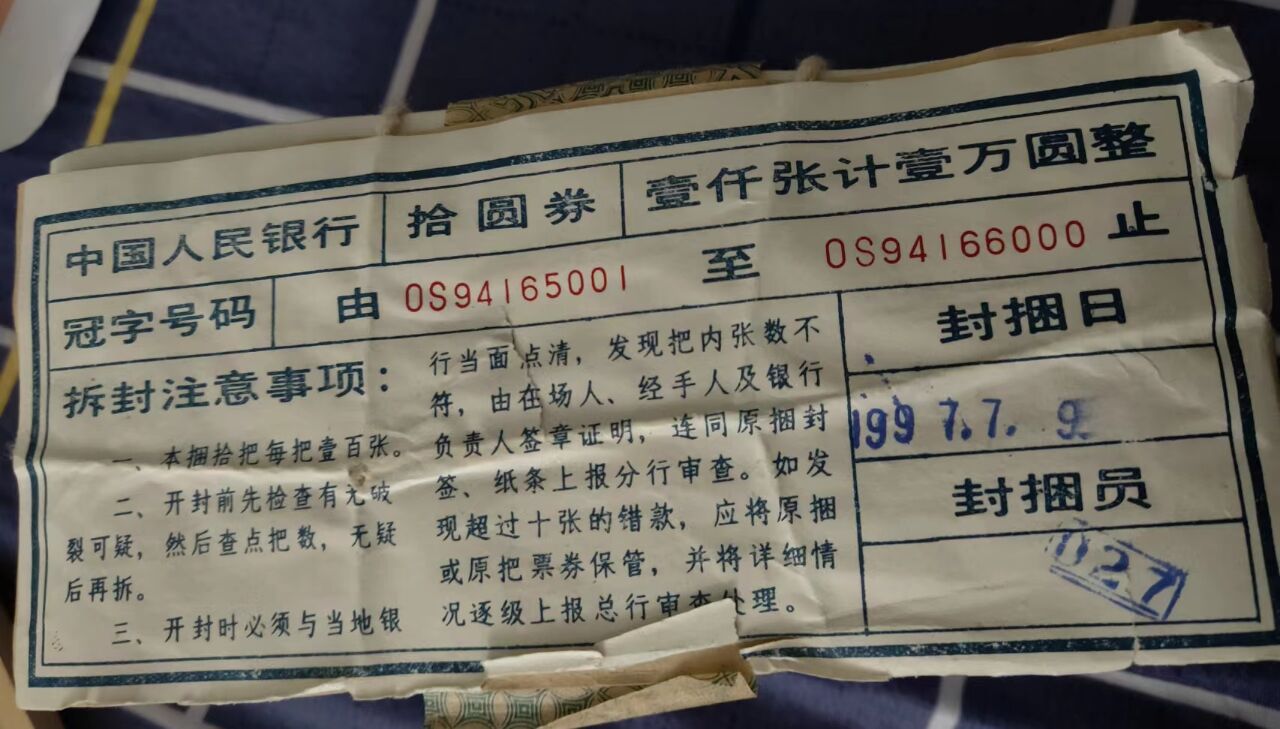 中国人民银行 拾圆券 壹仟张计壹万圆整
冠字号码 由 OS94165001 至 OS94166000 止
拆封注意事项：
一、本捆拾把每把壹百张。
二、开封前先检查有无破
裂可疑，然后查点把数，无疑
后再拆。
三、开封时必须与当地银
行当面点清，发现把内张数不
符，由在场人、经手人及银行
负责人签章证明，连同原捆封
签、纸条上报分行审查。如发
现超过十张的错款，应将原捆
或原把票券保管，并将详细情
况逐级上报总行审查处理。
封捆日
1997.7.9
封捆员
027